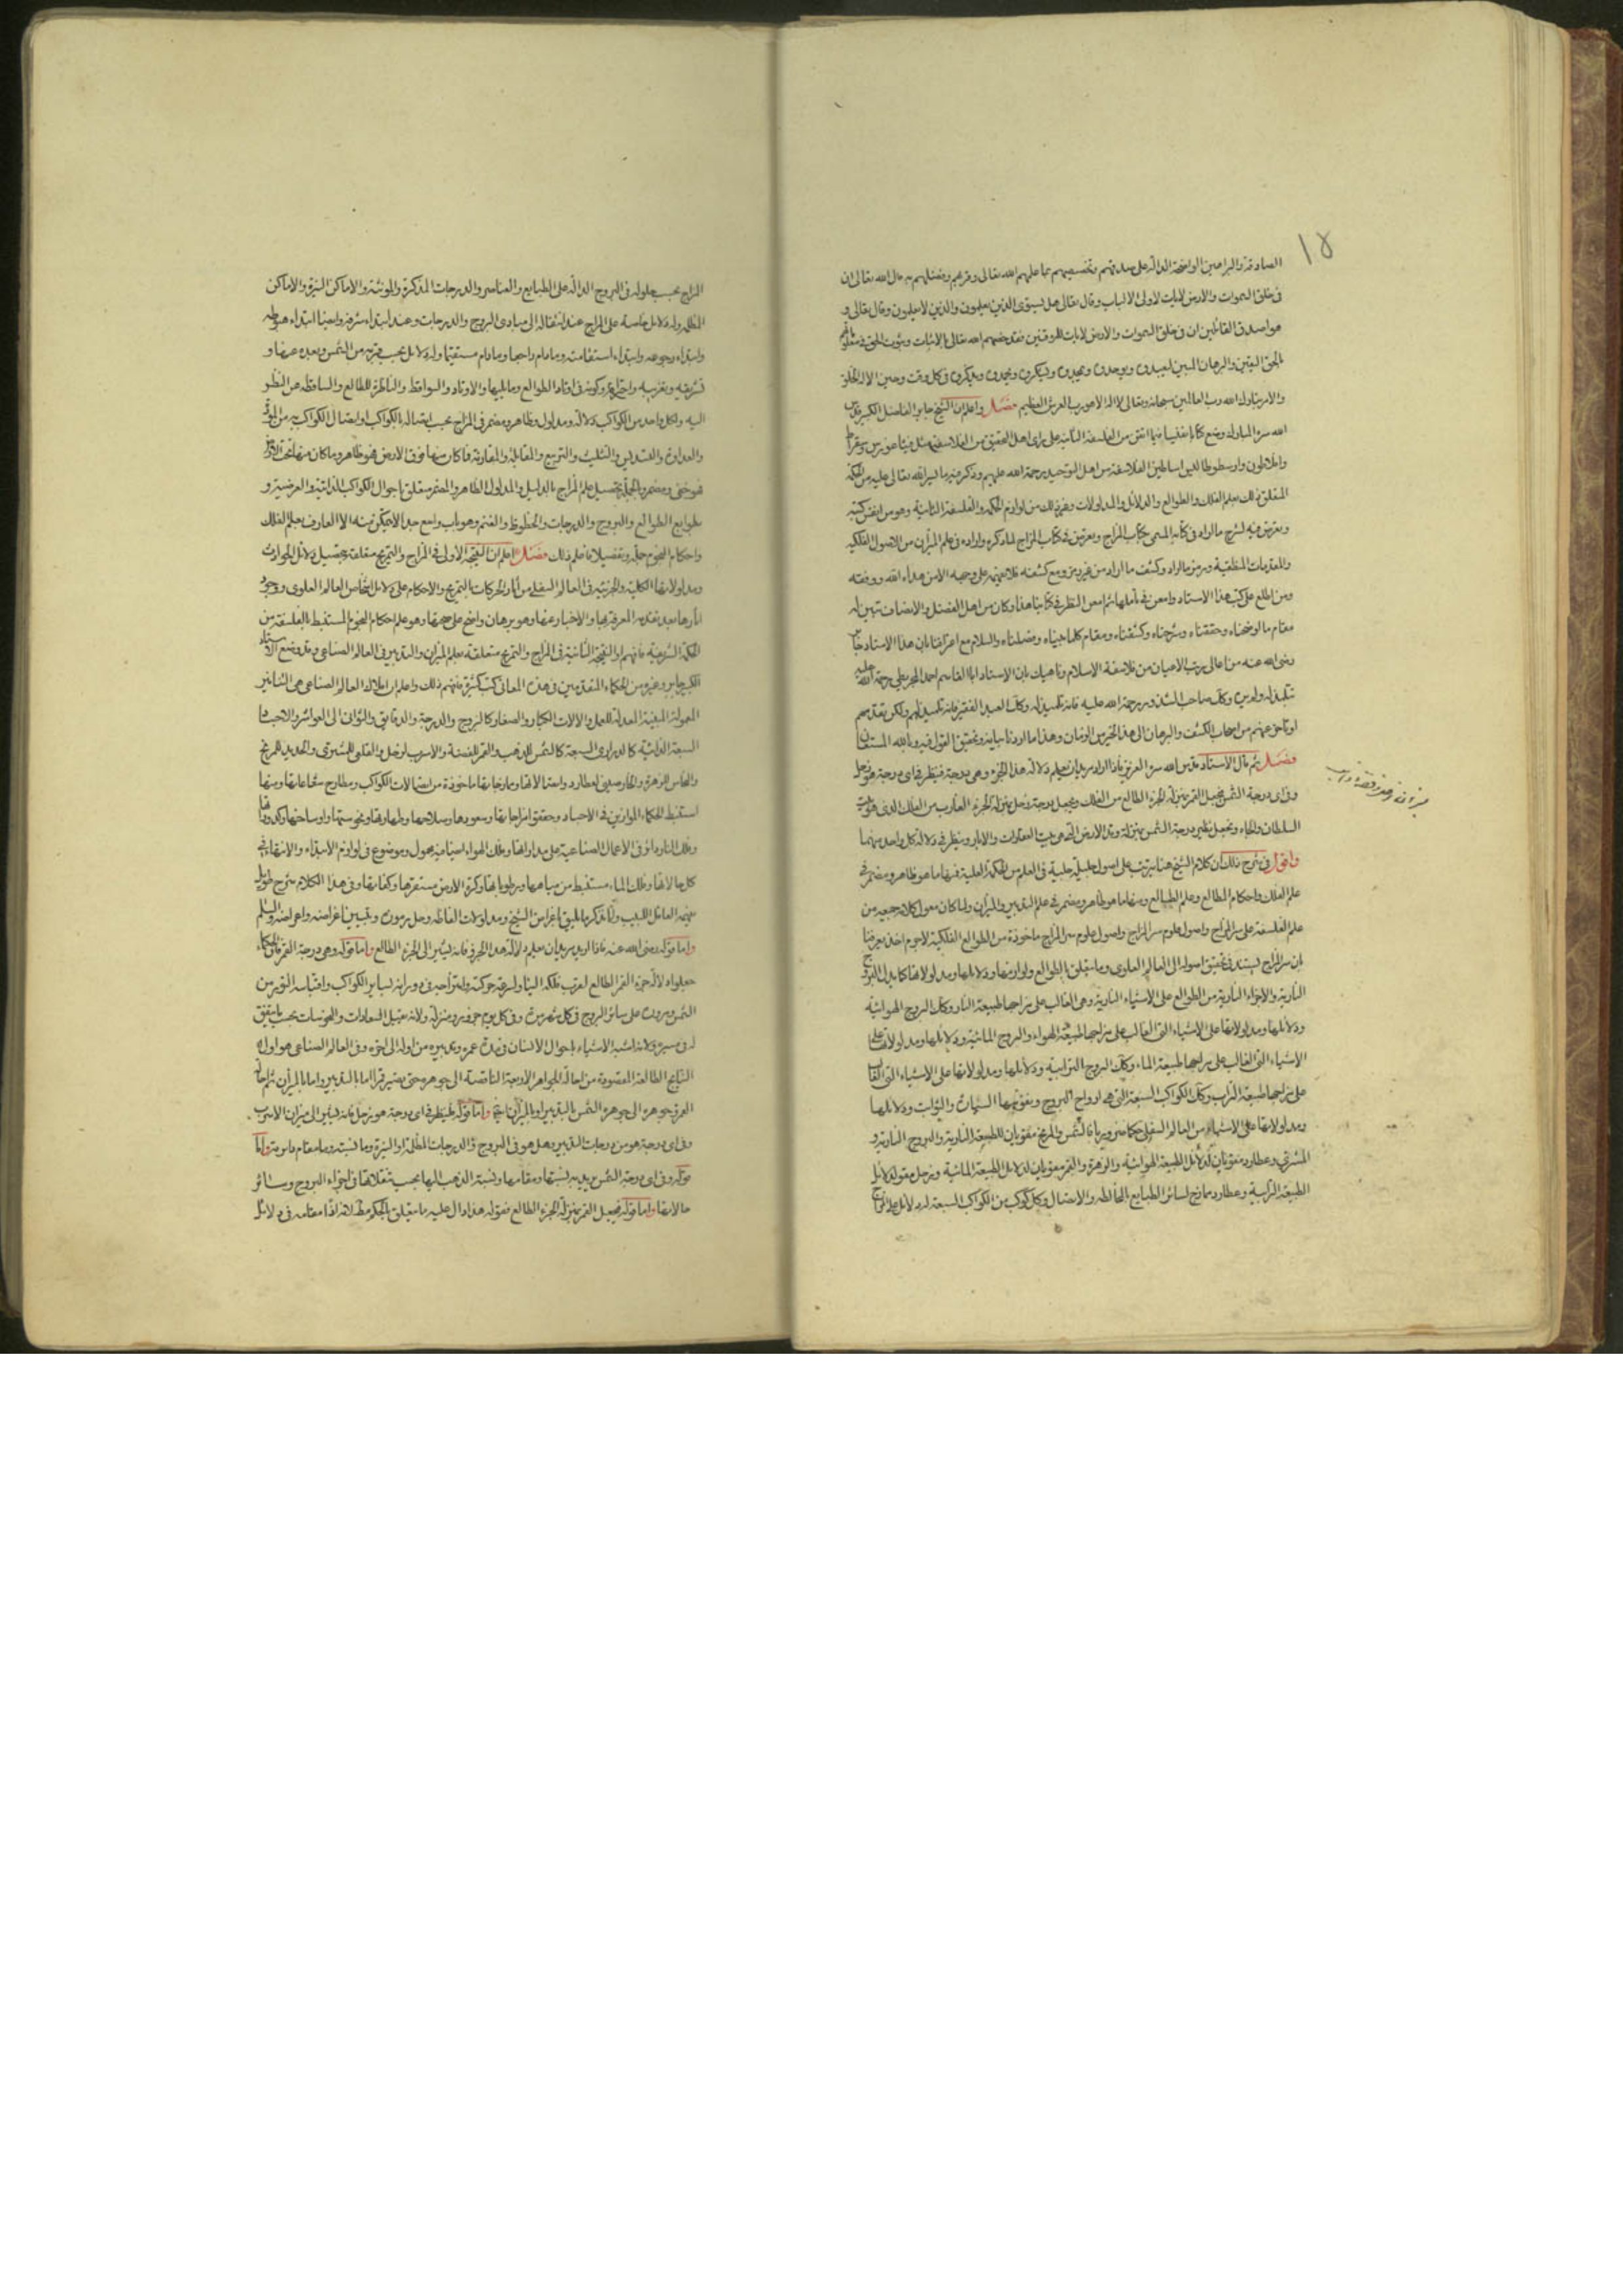 ١٥
الصادقة والبراهين الواضحة الدالة على صدقهم وتخصيصهم بما علمهم الله تعالى وقربهم وفضلهم به قال الله تعالى ان
فى خلق السموات والارض لايات لاولى الالباب وقال تعالى هل يستوى الذين يعلمون والذين لا يعلمون وقال تعالى و
هو اصدق القائلين ان فى خلق السموات والارض لايات للموقنين فقد خصهم الله تعالى بالاثبات وثبوت الحق
بالحق اليقين والبرهان المبين فى كل وقت وحين الا له الخلق
والامر تبارك الله رب العالمين سبحانه وتعالى لا اله الا هو رب العرش العظيم فصل واعلم ان الشيخ جابر الفاضل الكبير قدس
الله سره المبارك وضع كتابا من الفلسفة الثانية على راى اهل التحقيق من الفلاسفة مثل فيثاغورس وسقراط
وافلاطون وارسطوطاليس اساطين الفلاسفة من اهل التوحيد رحمة الله عليهم وذكر فيه ما يسر الله تعالى عليه من الحكمة
المتعلق ذلك بعلم الفلك والطوالع والدلائل والمدلولات وغير ذلك من لوازم الحكمة والفلسفة الثانية وهو من انفس كتبه
وتعرض فيه لشرح ما اراد فى كتابه المسمى بكتاب المزاج وتعرض فى كتاب المزاج لما ذكره واراده فى علم الميزان من الاصول الفلكية
والمقدمات المنطقية ورمز ما اراد وكشف ما اراد من غير رمز ومع كشفه فلا يفهمه على وجهه الا من هداه الله ووفقه
ومن اطلع على كتب هذا الاستاد وامعن فى تاملها ثم امعن النظر فى كتابنا هذا وكان من اهل الفضل والانصاف تبين له
مقام ما اوضحناه وحققناه وشرحناه وكشفناه ومقام كلما بيناه وفصلناه والسلام مع اعترافنا بان هذا الاستاد جابر
رضى الله عنه من اعالى مرتب الاعيان من فلاسفة الاسلام وناهيك بان الاستاد ابا القاسم احمد المجريطى رحمة الله عليه
تلميذ له ولدرس وكذلك صاحب الشذور رحمة الله عليه فانه تلميذ له وكذلك العبد الفقير فانه تلميذ لهم ولكن تقدمهم
او تاخر عنهم من اصحاب الكشف والبرهان الى هذا الحين من الزمان وهذا ما اردنا بيانه وتحقيق القول فيه وبالله المستعان
فصل ثم قال الاستاد قدس الله سره العزيز فاذا اراد مريد ان يعلم دلالة هذا الجزء وهى درجة فينظر فى اى درجة هو زحل
وفى اى درجة الشمس فيجعل القمر بمنزلة الجزء الطالع من الفلك ويجعل درجة زحل بمنزلة الجزء الغارب من الفلك الذى هو بيت
السلطان والجاه ويجعل نظير درجة الشمس بمنزلة وتد الارض التى هى بيت العقارات والآبار وينظر فى دلالة كل واحد منهما
واقول فى شرح ذلك ان كلام الشيخ هنا يترتب على اصول جليلة جلية فى العلم من الحكمة العلمية فمنها ما هو ظاهر ومضمر فى
علم الفلك واحكام الطالع وعلم الطبائع ومنها ما هو ظاهر ومضمر فى علم التدبير والميزان ولما كان معول كلامه جميعه من
علم الفلسفة على سر المزاج واصول علوم سر المزاج ماخوذة من الطوالع الفلكية لاجرم اخذ يعرفنا
ان سر المزاج يستند فى تحقيق اصوله الى العالم العلوى وما يتعلق بالطوالع ولوازمها ودلائلها ومدلولاتها كما يدل البروج
النارية والاجزاء النارية من الطوالع على الاشياء النارية وهى الغالب على مزاجها طبيعة النار وكذلك البروج الهوائية
ودلائلها ومدلولاتها على الاشياء التى الغالب على مزاجها طبيعة الهواء والبروج المائية ودلائلها ومدلولاتها على
الاشياء التى الغالب على مزاجها طبيعة الماء وكذلك البروج الترابية ودلائلها ومدلولاتها على الاشياء التى الغالب
على مزاجها طبيعة التراب وكذلك الكواكب السبعة التى هى ارواح البروج ونفوسها السيارة والثوابت ودلائلها
ومدلولاتها على الاشياء من العالم السفلى حكما ضروريا فالشمس والمريخ مقويان للطبيعة النارية والبروج النارية و
المشترى وعطارد مقويان لدلائل الطبيعة الهوائية والزهرة والقمر مقويان لدلائل الطبيعة المائية وزحل مقو لدلائل
الطبيعة الترابية وعطارد ممازج لسائر الطبايع بالمخالطة والاتصال وكل كوكب من الكواكب السبعة له دلائل على المزاج
المزاج بحسب حلوله فى البروج الدالة على الطبايع والعناصر والدرجات المذكرة والمونثة والاماكن النيرة والاماكن
المظلمة وله دلائل خاصة على المزاج عند انتقاله الى مبادى البروج والدرجات وعند ابتداء شرفه وايضا ابتداء هبوطه
وابتداء رجوعه وابتداء استقامته وما دام راجعا وما دام مستقيما وله دلائل بحسب قربه من الشمس وبعده عنها و
تشريقه وتغريبه واحتراقه وكونه فى اوتاد الطوالع وما يليها والاوتاد والسواقط والناظرة للطالع والساقطة عن النظر
اليه ولكل واحد من الكواكب دلالة ومدلول وظاهر ومضمر فى المزاج بحسب اتصاله بالكواكب او اتصال الكواكب به من المودة
والعداوة والتسديس والتثليث والتربيع والمقابلة والمقارنة فما كان منها فوق الارض فهو ظاهر وما كان منها تحت الارض
فهو خفى ومضمر وبالجملة تحصيل علم المزاج بالدليل والمدلول الظاهر والمضمر متعلق باحوال الكواكب الذاتية والعرضية و
بطوابع الطوالع والبروج والدرجات والحظوظ والقسم وهو باب واسع جدا لا يتمكن منه الا العارف بعلم الفلك
واحكام النجوم جملة وتفصيلا فاعلم ذلك فصل اعلم ان النتيجة الاولى فى المزاج والتمزيج متعلقة بتحصيل دلائل الحوادث
ومدلولاتها الكلية والجزئية فى العالم السفلى من آثار الحركات بالتمزيج والاحكام على دلائل اشخاص العالم العلوى ووجود
آثارها بعد تقدم المعرفة بها والاخبار عنها وهو برهان واضح على صحتها وهو علم احكام النجوم المستنبط بالفلسفة من
الحكمة الشريفة فافهم او النتيجة الثانية فى المزاج والتمزيج متعلقة بعلم الميزان والتدبير فى العالم الصناعى وقد وضع الاستاد
الكبير جابر وغيره من الحكماء المتقدمين فى هذه المعانى كتب كثيرة فافهم ذلك واعلم ان افلاك العالم الصناعى هى التنانير
المعمولة المبنية المعدلة للعمل والالات الكبار والصغار كالبروج والدرجة والدقايق والثوانى الى العواشر والاجساد
السبعة الذائبة كالدرارى السبعة كالشمس للذهب والقمر للفضة والاسرب لزحل والقلعى للمشترى والحديد للمريخ
والنحاس للزهرة والخارصينى لعطارد واتصالاتها وممازجاتها ماخوذة من اتصالات الكواكب ومطارح شعاعاتها ومنها
استنبط الحكماء الموازين فى الاجساد وحقق امتزاجاتها وسعودها وصلاحها وطهارتها ونحوستها واوساخها وكدوراتها
وفلك النار دائر فى الاعمال الصناعية على مداراتها وفلك الهواء ايضا فيه محول وموضوع فى لوازم الابتداء والانتهاء فى
كل حالاتها وفلك الماء مستنبط من مياهها ورطوباتها وكرة الارض مستقرها وكفاتها وفى هذا الكلام شرح طويل
يفهمه العاقل اللبيب وانا نذكر ما يليق باغراض الشيخ ومدلولات الفاظه وحل رموزه وتبيين اغراضه واعراضه والسلم
واما قوله رضى الله عنه فاذا اريد مريد ان يعلم دلالة هذا الجزء فانه يشير الى الجزء الطالع واما قوله وهى درجة القمر فان الحكماء
جعلوا دلالة جزء القمر الطالع لقرب فلكه الينا ولسرعة حركته وامتزاجه فى دورانه لساير الكواكب واقتباسه النور من
الشمس ومروره على سائر البروج فى كل شهر مرة وفى كل يوم حرف ومنزلة ولانه يقبل السعادات والنحوسات بحسب ما يتفق
له فى مسيره ولانه اشبه الاشياء باحوال الانسان فى مدة عمره وتدبيره من اوله الى اخره وفى العالم الصناعى هو اول
النتايج الطالعة المقصودة من احالة الجواهر الاربعة الناقصة الى جوهره حتى يصير قمرا اما بالتدبير واما بالميزان ثم احالة
القمر فى جوهره الى جوهرة الشمس بالتدبير او بالميزان ايضا واما قوله فلينظر فى اى درجة هو زحل فانه يشير الى ميزان الاسرب
وفى اى درجة هو من درجات التدبير وهل هو فى البروج والدرجات المظلمة او النيرة وما نسبته وما مقام ناموسه واما
قوله وفى اى درجة الشمس يريد به نسبتها ومقامها ونسبة الذهب اليها بحسب تنقلاتها فى اجزاء البروج وسائر
حالاتها واما قوله فيجعل القمر بمنزلة الجزء الطالع فقوله هذا دال عليه ما يتعلق بالحكم مطلقا لانه اذا مقامه فى دلائل